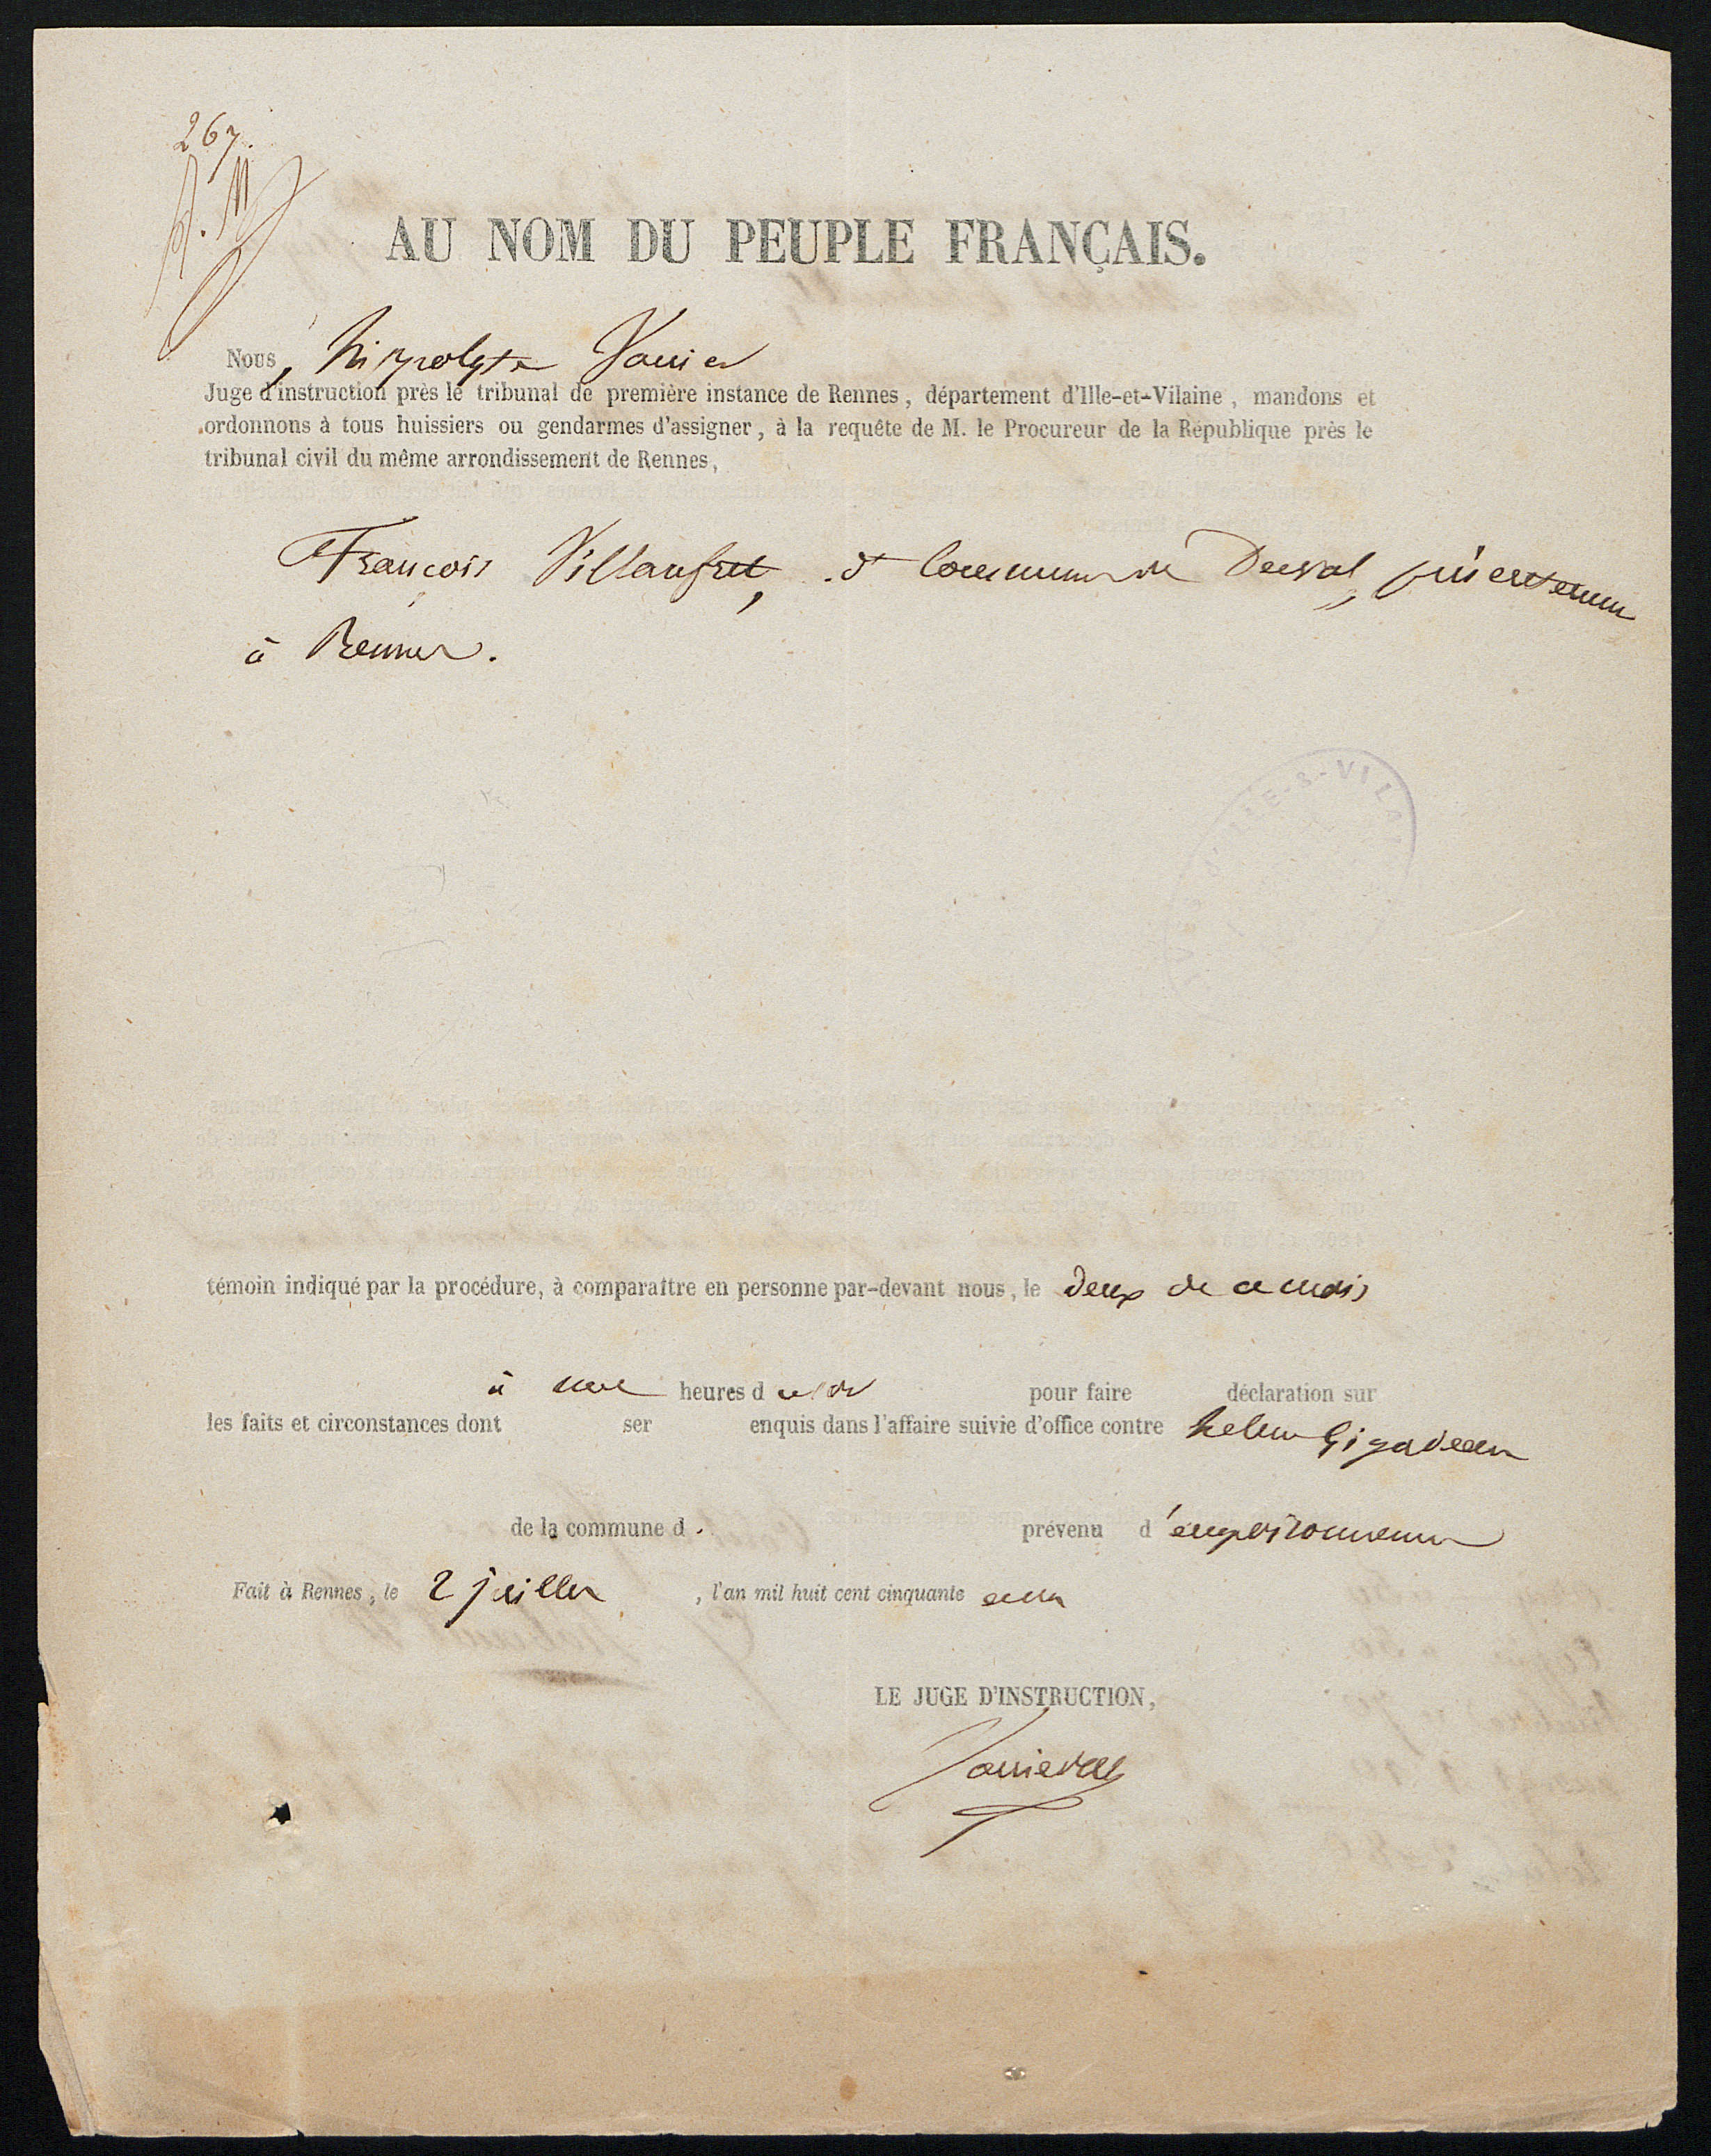 267.
AU NOM DU PEUPLE FRANÇAIS.
Nous, hippolyte Vannier
Juge d'instruction près le tribunal de première instance de Rennes, département d'Ille-et-Vilaine, mandons et
ordonnons à tous huissiers ou gendarmes d'assigner, à la requête de M. le Procureur de la République près le
tribunal civil du même arrondissement de Rennes,
François de Derval,
à Rennes.
témoin indiqué par la procédure, à comparaître en personne par-devant nous, le deux de ce mois
à une heures d pour faire déclaration sur
les faits et circonstances dont ser enquis dans l'affaire suivie d'office contre helene Jégado
de la commune d prévenu d'empoisonnement
Fait à Rennes, le 2 juillet, l'an mil huit cent cinquante et un
LE JUGE D'INSTRUCTION,